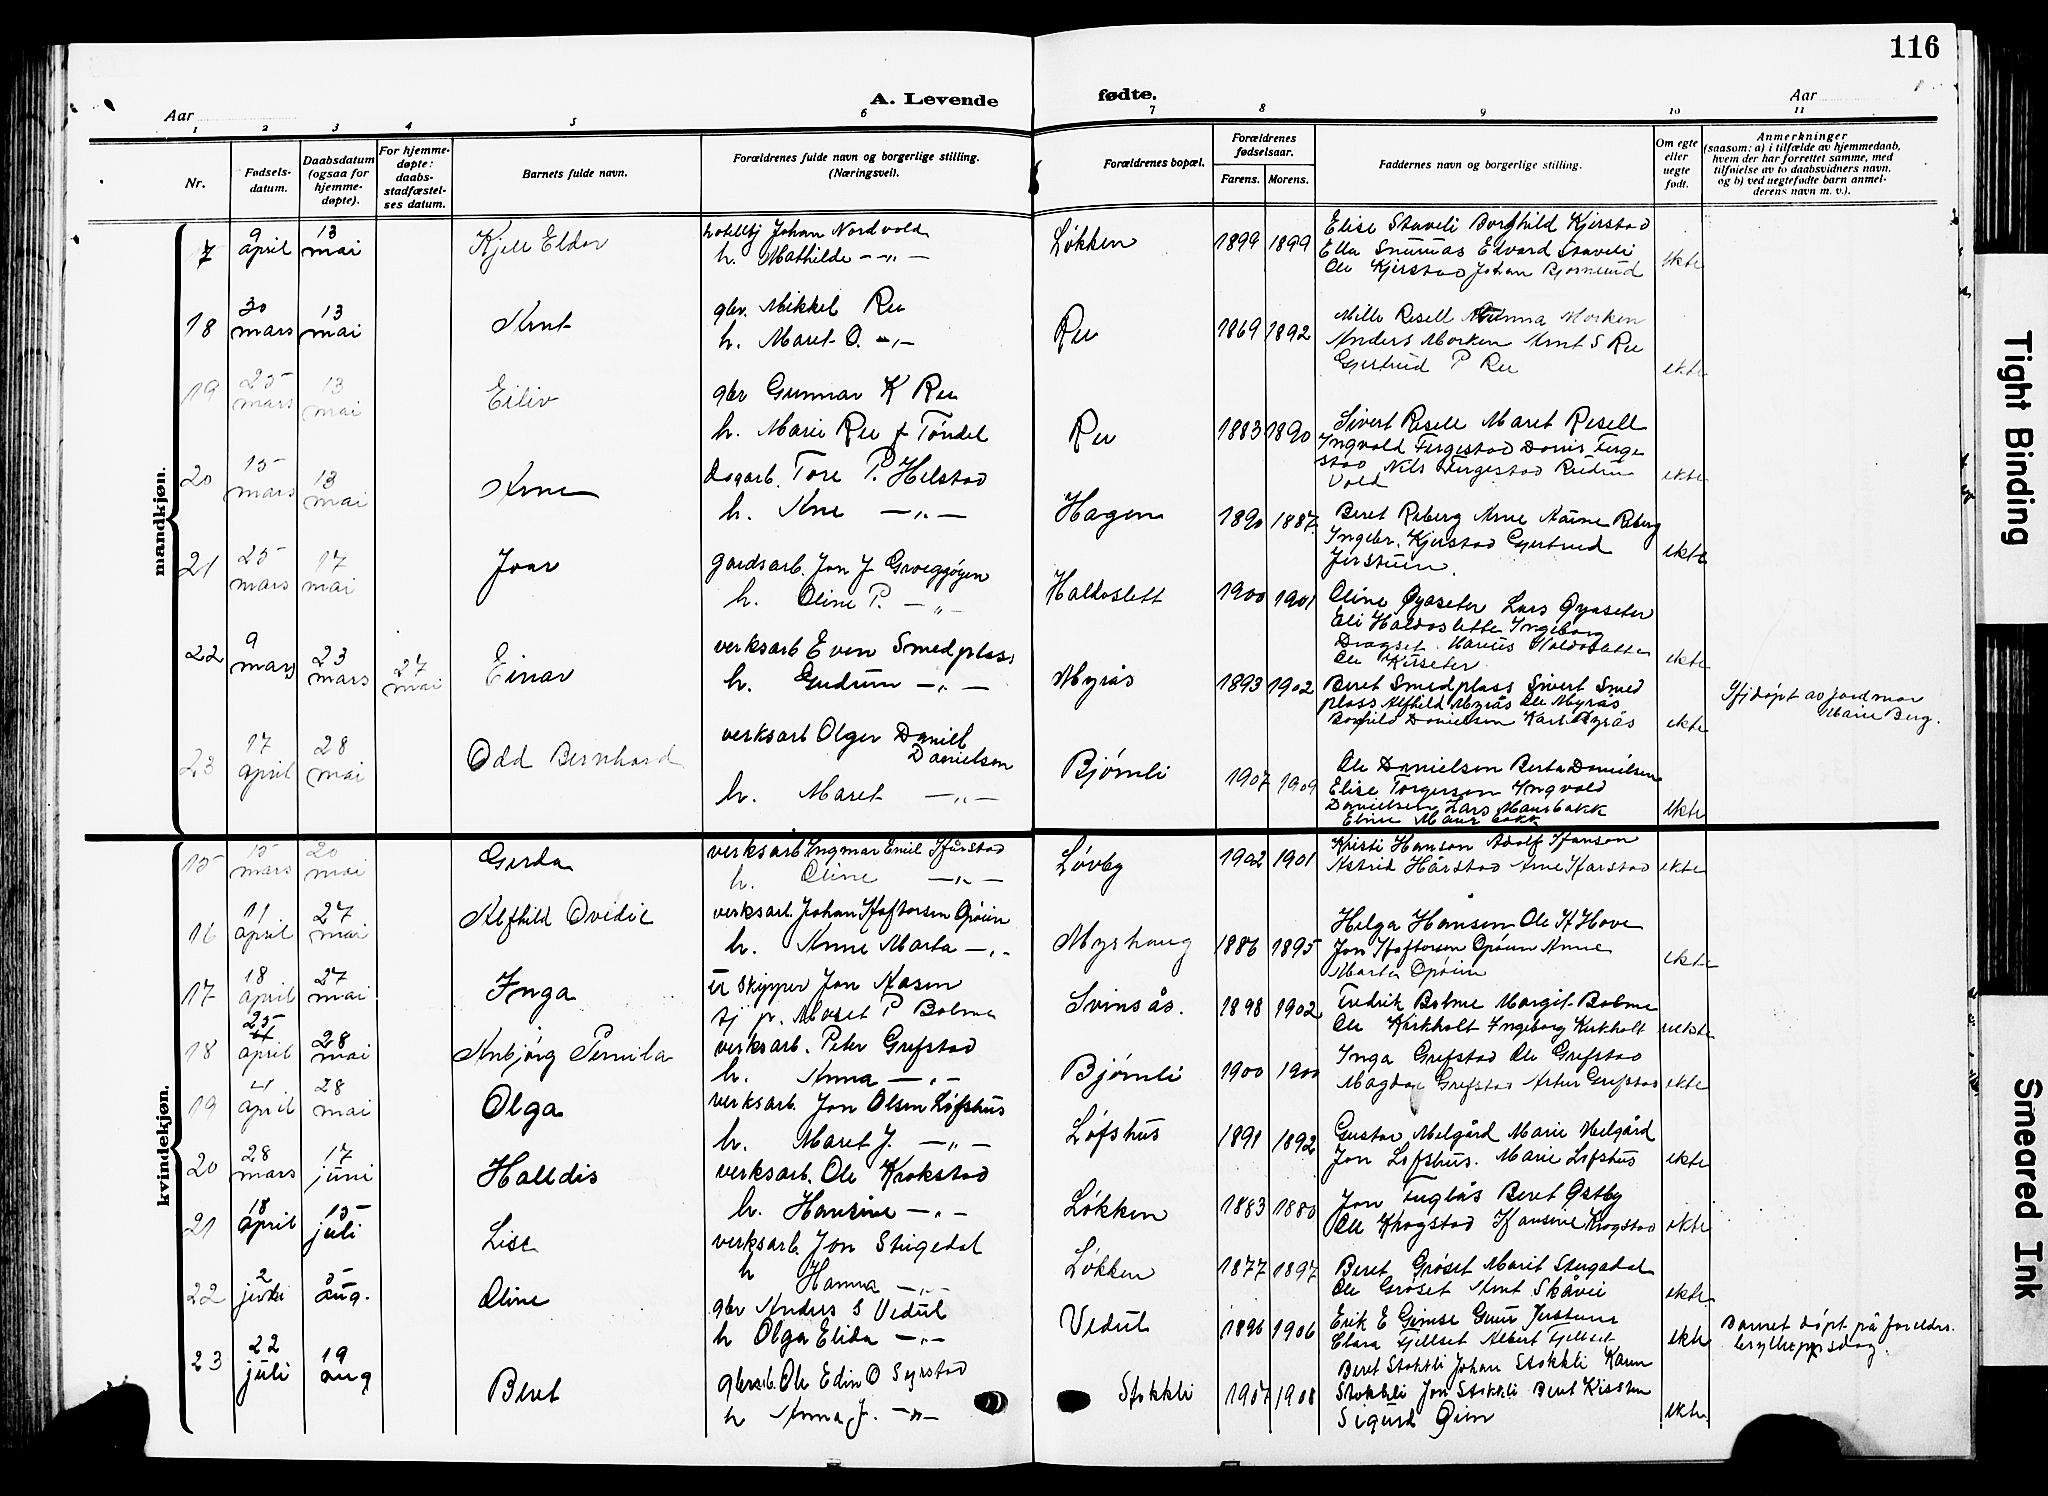 116
A. Levende fødte.
Aar
Aar
1 2 3 4 5 6 7 8 9 10 11
Nr.
Fødsels-
datum.
Daabsdatum
(ogsaa for
hjemme-
døpte).
For hjemme-
døpte:
daabs-
stadfæstel-
ses datum.
Barnets fulde navn.
Forældrenes fulde navn og borgerlige stilling.
(Næringsvei).
Forældrenes bopæl.
Forældrenes
fødselsaar.
Farens. Morens.
Faddernes navn og borgerlige stilling.
Om egte
eller
uegte
født.
Anmerkninger
(saasom: a) i tilfælde av hjemmedaab,
hvem der har forrettet samme, med
tilføielse av to daabsvidners navn,
og b) ved uegtefødte barn anmel-
derens navn m. v.).
mandkjøn.
17 9 april 13 mai Kjell Eldor
hotellbj Johan Nordvold
h. Mathilde —"—
Løkken 1899 1899
Elise Staveli Borghild Kjerstad
Ella Snuruås Edvard Staveli
Ole Kjerstad Johan Bjørnlund
ekte
18 30 mars 13 mai Arnt
gbr. Mikkel Ree
h. Maret O. —"—
Ree 1869 1892
Mille Resell Gunna Morken
Anders Morken Arnt S Ree
Gjertrud P Ree
ekte
19 25 mars 13 mai Eiliv
gbr Gunnar K Ree
h. Marie Ree f Tøndel
Ree 1883 1890
Sivert Resell Maret Resell
Ingvald Fergestad Doris Ferge
stad Nils Fergestad Reidun
Vold
ekte
20 15 mars 13 mai Arne
Dagarb. Tore P. Helstad
h. Ane —"—
Hagen 1890 1887
Beret Reberg Arne Reberg
Ingebr. Kjerstad Gjertrud
Jerstuen.
ekte
21 25 mars 17 mai Joar
gardsarb. Jon J. Groeggjøyen
h. Oline P. —"—
Haldoslett 1900 1901
Oline Øyaseter Lars Øyaseter
Eli Haldoslette Ingeborg
Dragset. Marius Haldoslette
Ole
ekte
22 9 mars 23 mars 27 mai Einar
verksarb Even Smedplass
h. Gudrun —"—
Myrås 1893 1902
Beret Smedplass Sivert Smed
plass Alfhild Myrås Ole Myrås
Borghild Danielsen Karl Myrås
ekte
Hjdøpt av jordmor
Marie Berg.
23 17 april 28 mai Odd Bernhard
verksarb Olger Daniel
Danielsen
h. Maret —"—
Bjørnli 1907 1909
Ole Danielsen Berta Danielsen
Elise Torgersen Ingvald
Danielsen Lars Maurbakk
Eline Maurbakk
ekte
kvindekjøn.
15 15 mars 20 mai Gerda
verksarb Ingmar Emil Harstad
h. Oline —"—
Løvby 1902 1901
Kristi Hanson Adolf Hanson
Astrid Hårstad Arne Harstad
ekte
16 11 april 27 mai Alfhild Ovidie
verksarb. Johan Haftorsen Opøien
h. Anne Marta —"—
Myrhaug 1886 1895
Helga Hansen Ole H Hove
Jon Haftorsen Opøien Anne
Marta Opøien
ekte
17 18 april 27 mai Inga
u skipper Jon Aasen
tj p. Maret P Bolme
Svinsås. 1898 1902
Fredrik Bolme Margit Bolme
Ole Kirkholt Ingeborg Kirkholt
uekte
18 25 april 28 mai Anbjørg Pernila
verksarb. Peter Grefstad
h. Anna —"—
Bjørnli 1900 1900
Inga Grefstad Ole Grefstad
Magda Grefstad Artur Grefstad
ekte
19 4 april 28 mai Olga
verksarb. Jon Olsen Løfshus
h. Maret J. —"—
Løfshus 1891 1892
Gustav Melgård Marie Melgård
Jon Løfshus. Marie Løfshus
ekte
20 28 mars 17 juni Halldis
verksarb. Ole Krokstad
h. Hansine —"—
Løkken 1883 1880
Jon Fuglås Beret Østby
Ole Krogstad Hansine Krogstad
ekte
21 18 april 15 juli Lise
verksarb Jon Stugedal
h Hanna —"—
Løkken 1877 1897
Beret Grøset Marit Stugedal
Ole Grøset Arnt Skåvei
ekte
22 2 5 aug. Oline
gbr Anders S Vedul
h Olga Elida —"—
Vedul 1896 1906
Erik E Gjinse Guru Jerstuen
Clara Fjellset Albert Fjellset
ekte
Barnet døpt på foreldrs.
bryllupsdag.
23 22 juli 19 aug Beret
gbrarb. Ole Edin O Syrstad
h Anna J. —"—
Stokkli 1907 1908
Beret Stokkli Johan Stokkli Karen
Stokkli Jon Stokkli Beret Kirsten
Sigurd Øien
ekte
Tight Binding
Smeared Ink